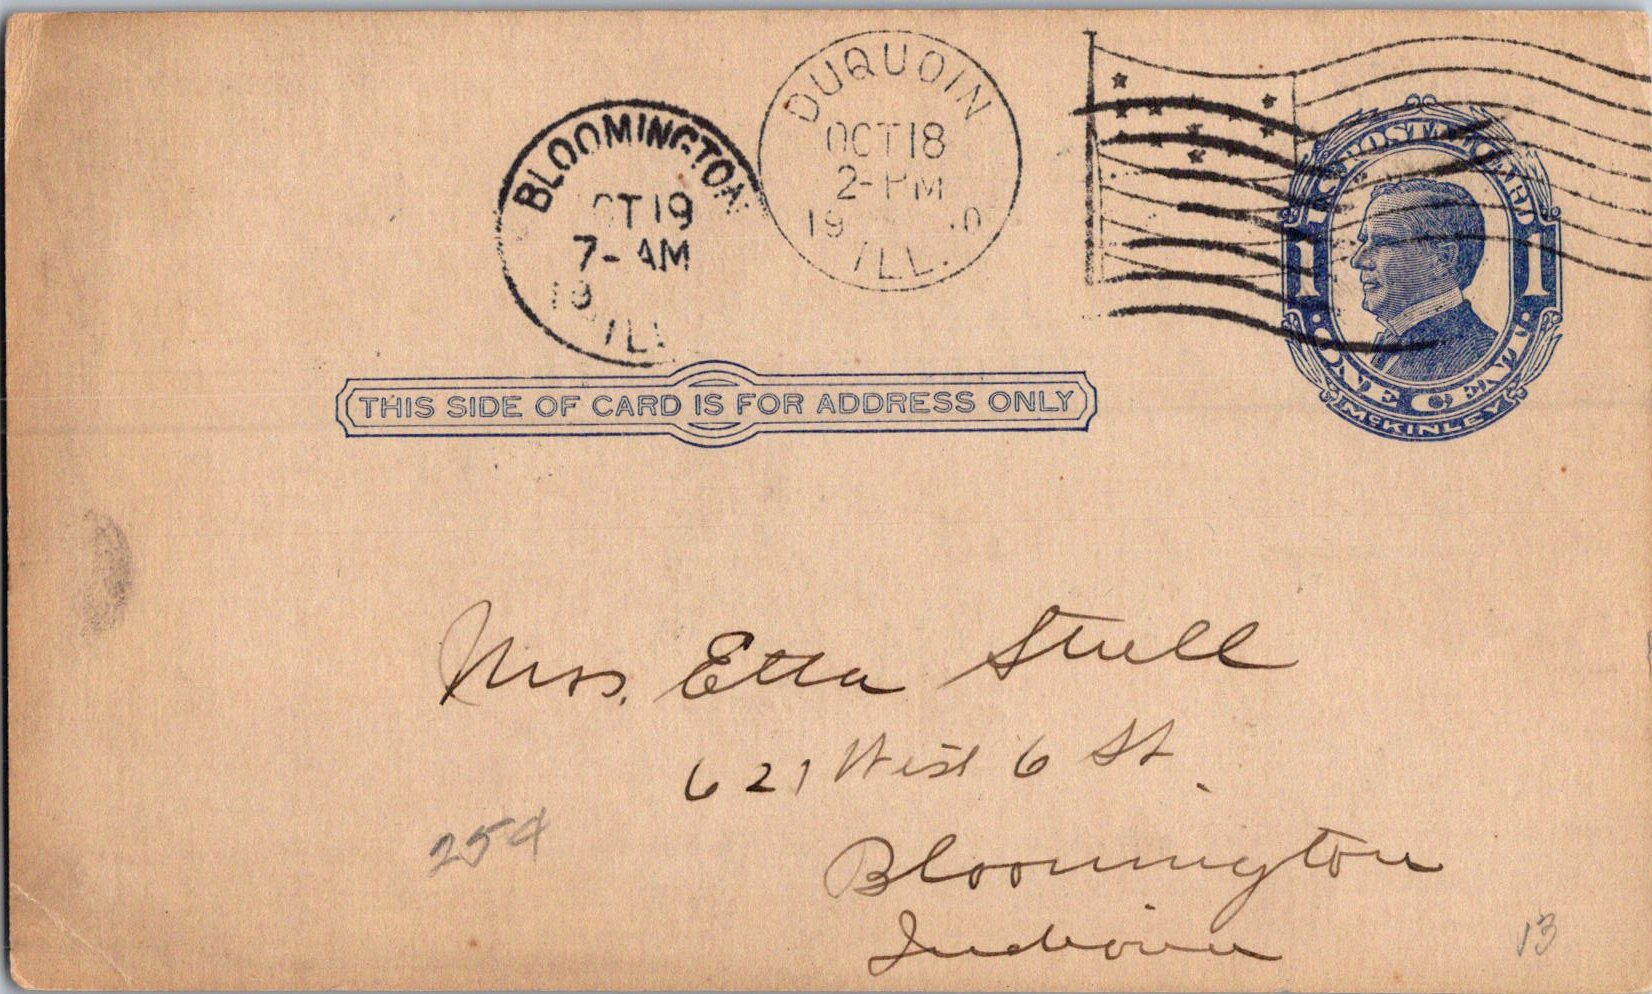 BLOOMINGTON
OCT 19
7-AM
19
ILL.
DUQUOIN
OCT 18
2-PM
19 10
ILL.
U.S. POSTAL CARD
1 1
·ONE CENT·
McKINLEY
THIS SIDE OF CARD IS FOR ADDRESS ONLY
Mrs. Etta Stull
621 West 6 St.
Bloomington
Indiana
25¢
13